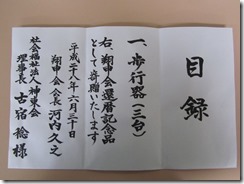 目録
一、歩行器(三台)
右、翔申会還暦記念品
として寄贈いたします
平成二十八年六月三十日
翔申会会長 河内久之
社会福祉法人 神東会
理事長 古宿 稔 様